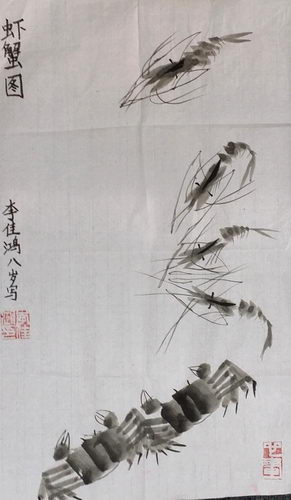 虾蟹图
李佳鸿八岁写